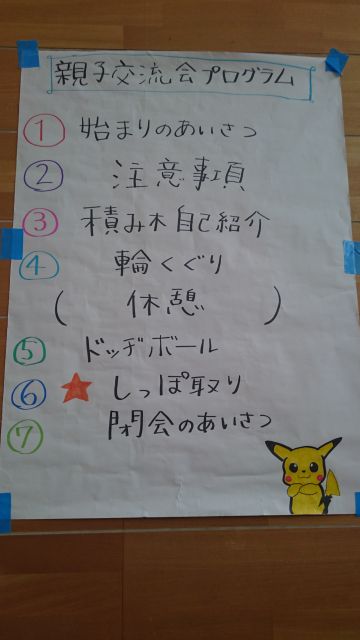 親子交流会プログラム
① 始まりのあいさつ
② 注意事項
③ 積み木自己紹介
④ 輪くぐり
( 休憩 )
⑤ ドッヂボール
⑥ ★ しっぽ取り
⑦ 閉会のあいさつ